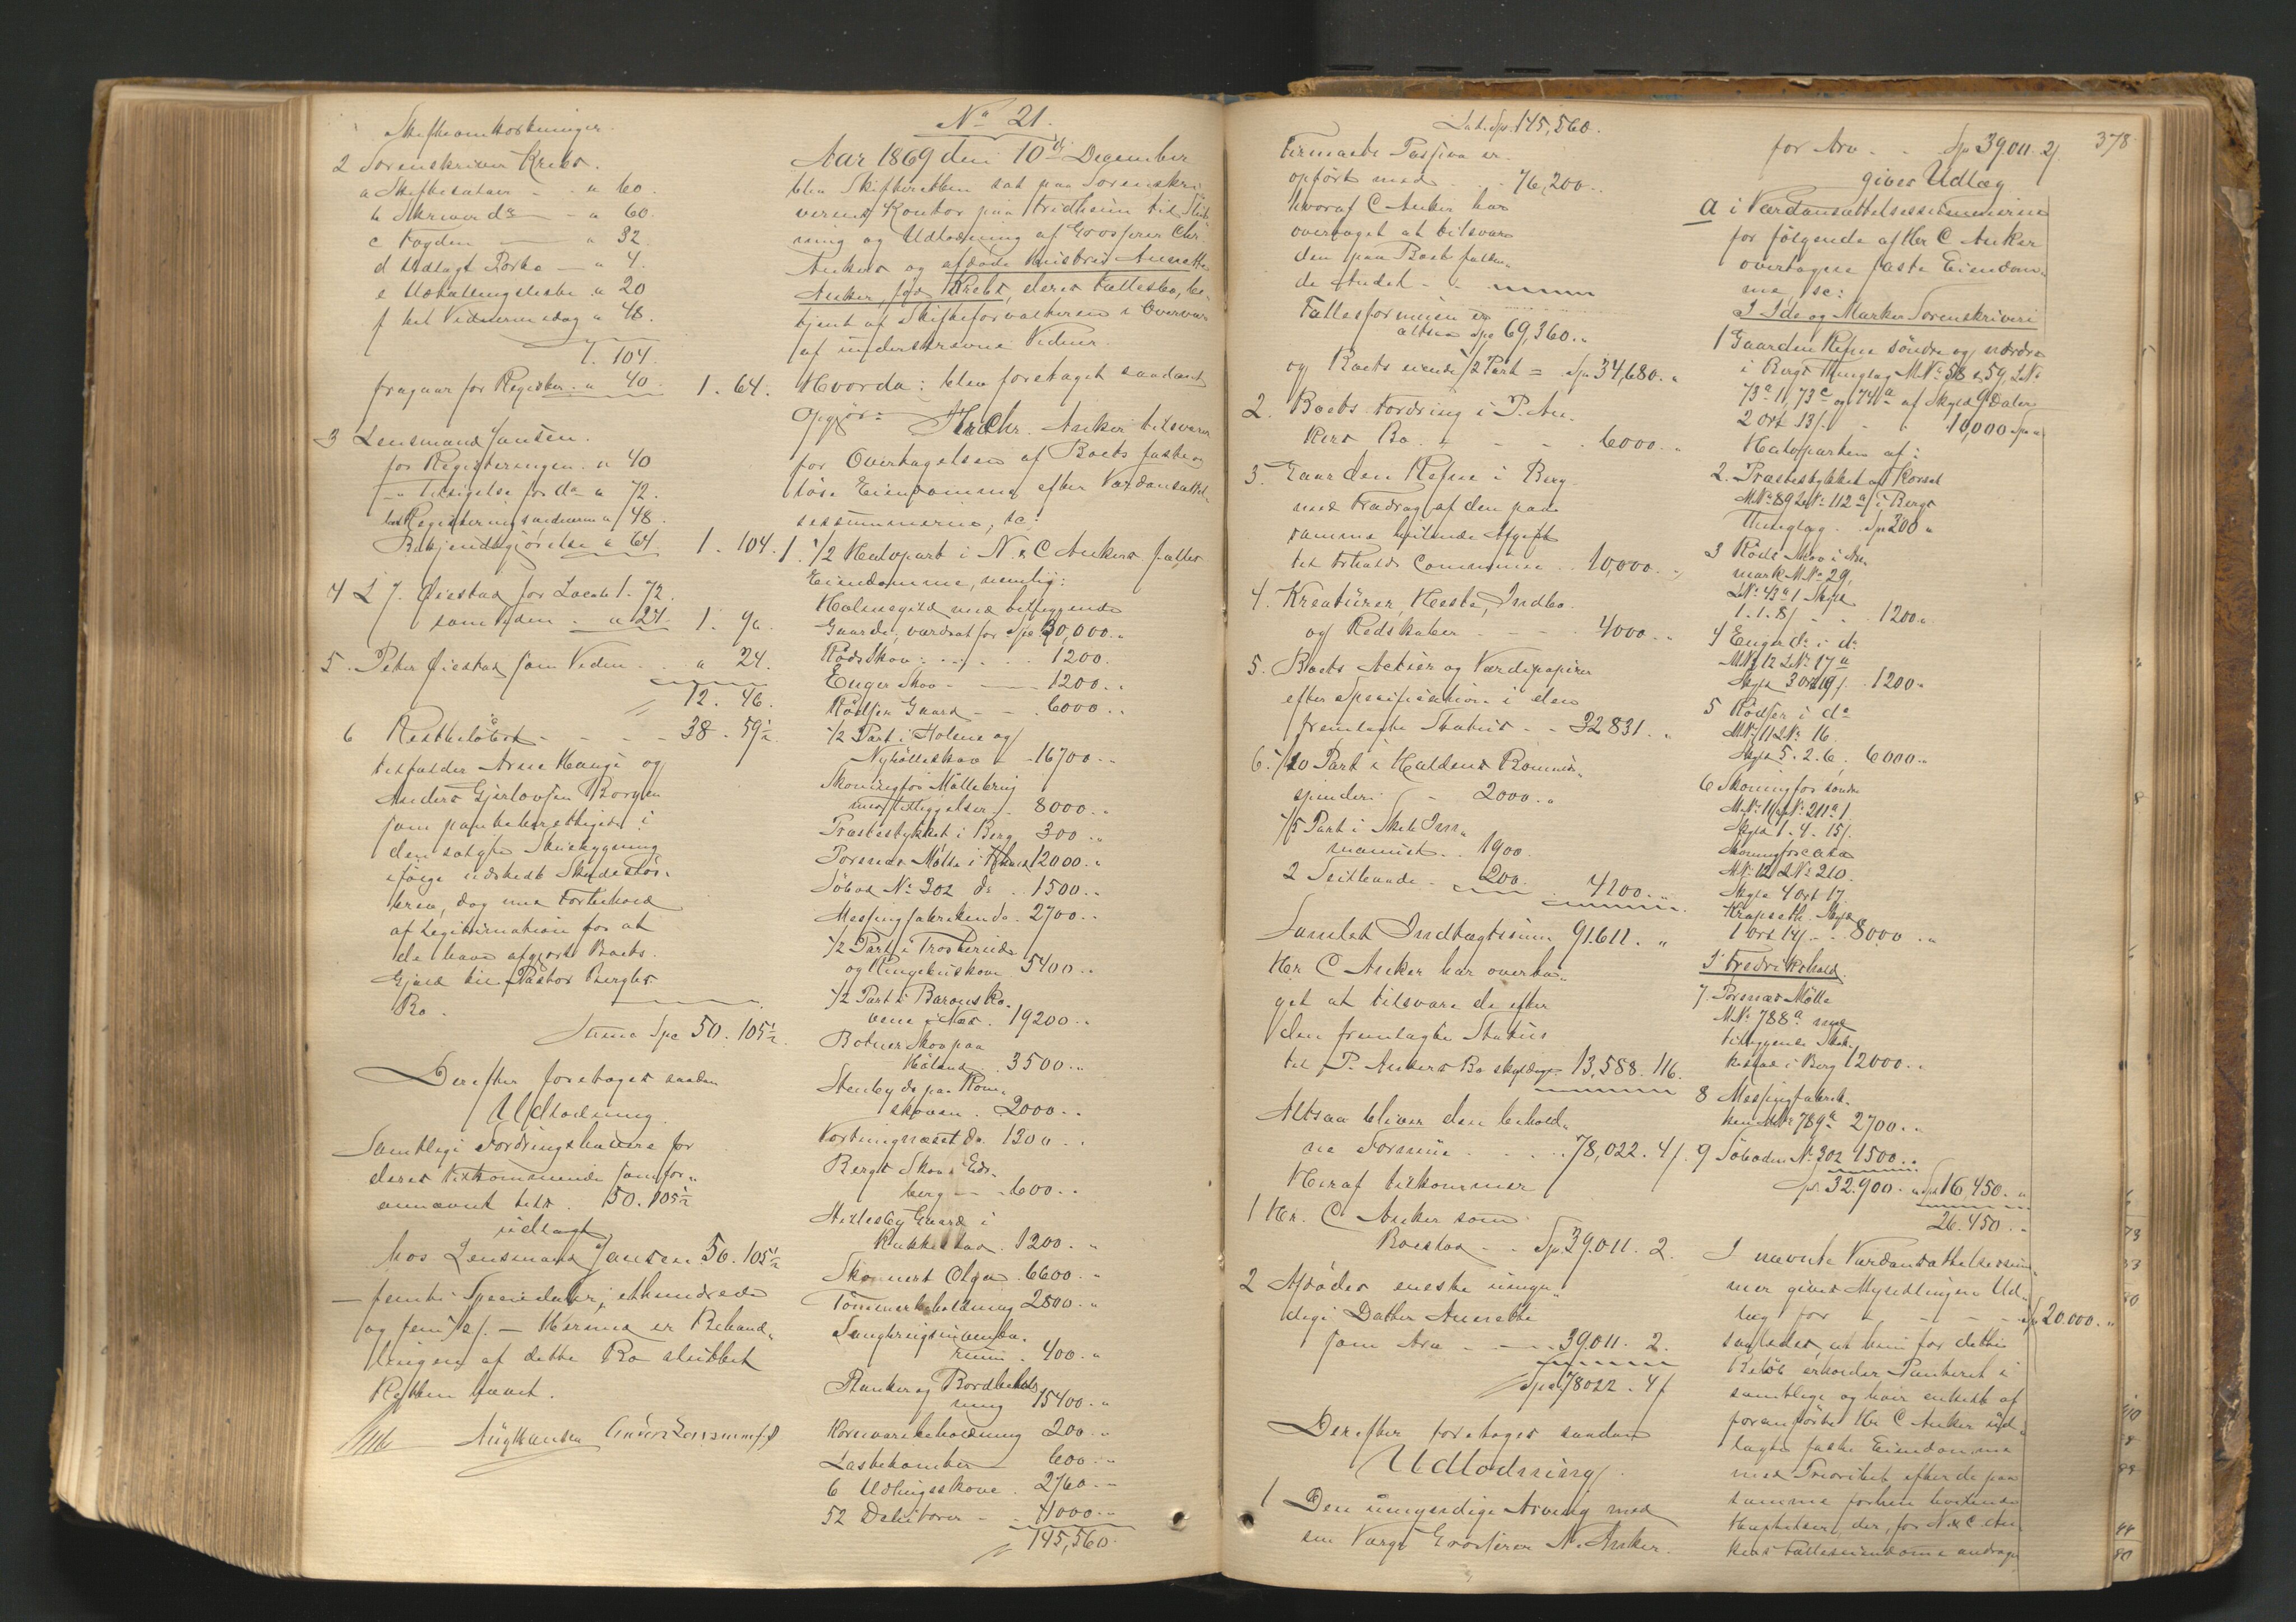 Skifteomkostninger.
2 Sorenskriver Krebs.
a Skiftesalair - - " 60.
b Skriver ds - " 60.
c Fogden - " 32
d Udlagt Porto - " 4.
e Udtællingsliste " 20
f bet Vidnerne idag " 48.
1. 104.
fragaar for Register. " 40. 1. 64.
3 Lensmand Jansen.
for Registreringen. " 40
-"- Tilsigelse for do " 72.
bet Registeringsvidnerne " 48.
Bekjendtgjørelse " 64 1. 104.
4 L J. Øiestad for Locale 1. 72.
som Viden . " 24. 1. 96.
5. Peter Øiestad som Viden . . " 24.
12. 46.
6 Restbeløbet - - - - 38. 59½
tilfalder Arne Hauge og
Anders Gjerlovsen Borgen
som panteberettigede i
den solgte Huusbygning
ifølge udstedt Skadesløs-
brev, dog med Forbehold
af Legitimation for at
de have afgjort Boets
Gjæld til Pastor Berghs
Bo.
Summa Spd 50. 105½.
Derefter foretoges saadan
Udlodning
Samtlige Fordringshavere for
deres Tilkommende som for-
annævnt tils. 50. 105½
udlagt
hos Lensmand Jansen 50. 105½
- femti Speciedaler, ethundrede
og fem ½ s. - Hermed er Behand-
lingen af dette Bo sluttet
Retten hævet.
Aug Hansen
No 21.
Aar 1869 den 10de December
blev Skifteretten sat paa Sorenskri-
verens Kontor paa Fridheim til Slut-
ning og Udlodning af Grosserer Chr.
Ankers og afdøde Hustru Annette
Anker fød Krebs, deres Fællesbo, be-
tjent af Skifteforvalteren i Overvær
af underskrevne Vidner.
Hvorda: blev foretaget saadant
Opgjør: Hr Chr. Anker tilsvarer
for Overtagelsen af Boets faste og
løse Eiendomme, efter Værdansættel-
sessummerne, sc:
1. ½ Halvpart i N. & C Ankers fælles
Eiendomme, nemlig:
Holmegild med tilliggende
Gaarde, værdsat for Spd 30,000. "
Røds Skov . . . . . 1200.
Enger Skov - - - 1200. "
Rødsen Gaard - - 6000. "
½ Part i Holme og
Nyhølleskov - 16700. "
Skoningfos Møllebrug
med tilliggelser. - 8000. "
Præstestykket i Berg 300 "
Porsnæs Mølle i Fhald 12000. "
Søbod No 302 do . . 1500. "
Messingfabriken do. 2700. "
½ Part i Trosterud
og Ringebuskove 5400. "
½ Part i Barons Sko-
vene i Næs. 19200. "
Botner Skov paa
Høland 3500. "
Stenby do paa Rom-
skoven. 2000. "
Kortningnæset do. 1300. "
Bergs Skov i Eids-
berg - - 600. "
Hellesby Gaard i
Rakkestad. 1200. "
Skonnert Olga. 6600. "
Tømmerbeholdning 2500. "
400. "
Planker og Bordbehold-
ning 15400. "
Kornvarebeholdning 200. "
600. "
6 Udlugsskove . 2760. "
52 Debitorer - - 4000. "
145,560.
Lat. Sp. 145,560.
Firmaets Passiva er
opført med . . . 76,200. "
hvoraf C Anker har
overtaget at tilsvare
den paa Boet falden-
de Andel - -
Fællesformuen er
altsaa Spd 69,360. "
og Boets eiende ½ Part = Spd 34,680. "
2. Boets Fordring i P. An-
kers Bo . - - - . 6000. "
3. Gaarden Refne i Berg
med Fradrag af den paa
samme hvilende Afgift
til Fhalds Commune . . 10,000. "
4. Kreaturer, Heste, Indbo
og Redskaber - - - . 4000. "
5. Boets Actier og Værdipapirer
efter Specification i den
fremlagte Status - - 32831. "
6. 1/20 Part i Haldens Bomuld-
spinderi - 2000. "
1/5 Part i Skeb Im-
manuel . . 1900.
2 200. 4100. "
Samlet Indtægtssum 91,611. "
Hr. C Anker har overta-
get at tilsvare de efter
den fremlagte Status
til P. Ankers Bo skyldige. 13,588. 116.
Altsaa bliver den behold-
ne Formue . . . . . 78,022. 4 s.
Heraf tilkommer
1 Hr. C Anker som
Boeslod - - Spd 39.011. 2.
2 Afdødes eneste umyn-
dige Datter Annette
som Arv - - - 39.011. 2.
Spd 78022. 4 s
Derefter foretoges saadan
Udlodning.
1 Den umyndige Arving med
sin Værge Grosserer N. Anker.
378
for Arv - - Spd 39.011. 2 s.
gives Udlæg
a i Værdansættelsessummerne
for følgende af Hr C Anker
overtagne faste Eiendom-
me, sc:
I Idd og Marker Sorenskriveri
1 Gaarden Refne søndre og nordre
i Bergs Thinglag M No 58 & 59, L No
73 a 1, 73 c og 74 a af Skyld 9 Daler
2 Ort 13 s. 10,000 Spd "
Halvparten af:
2. Præstestykket af Korsæt
M No 89 L No 112 a i Bergs
Thinglag. Spd 300 "
3 Røds Skov i Are-
mark M No 29,
L No 43 a 1 Skyld
1. 1. 8 s. . 1200. "
4 Enger do i do
M No 12 L No 17 a
Skyld 3 Ort 19 s. 1200. "
5 Rødsen i do
M No 11 L No 16.
Skyld 5. 2. 6. 6000. "
6 Skoningfos søndre
M No 110 L No 211 a 1.
Skyld 1. 4. 15 s.
M No 121 L No 210.
Skyld 4 Ort 17.
Krapseth. Skyld
1 Ort 14 s. . . 8000. "
I Fredrikshald.
7. Porsnæs Mølle
M No 788 a med
tilliggende
i Berg 12000. "
8 Messingfabrik-
ken M No 789 a 2700. "
9 Søboden No 302 1500. "
Spd 32.900. " Spd 16,450. "
26.450. "
I nævnte Værdansættelsessum-
mer gives Myndlingen Ud-
læg for - - - - Spd 20.000. "
saaledes, at hun for dette
Beløb erholder Panteret i
samtlige og hver enkelt af
foranførte Hr C Anker ud-
lagte faste Eiendomme
med Prioritet efter de paa
samme forhen hvilende
Hæftelser, der, for N & C An-
kers Fælleseiendomme andrage